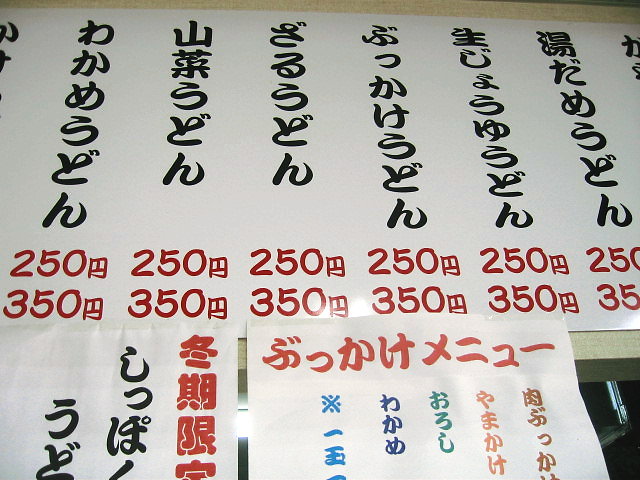 湯だめうどん
生じょうゆうどん
ぶっかけうどん
ざるうどん
山菜うどん
わかめうどん
250円 250円 250円 250円 250円 250
350円 350円 350円 350円 350円 35
ぶっかけメニュー
肉ぶっかけ
やまかけ
おろし
わかめ
※一玉
冬期限定
しっぽく
うど